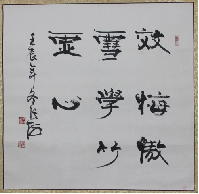 效梅傲
雪學竹
虛心
壬辰年